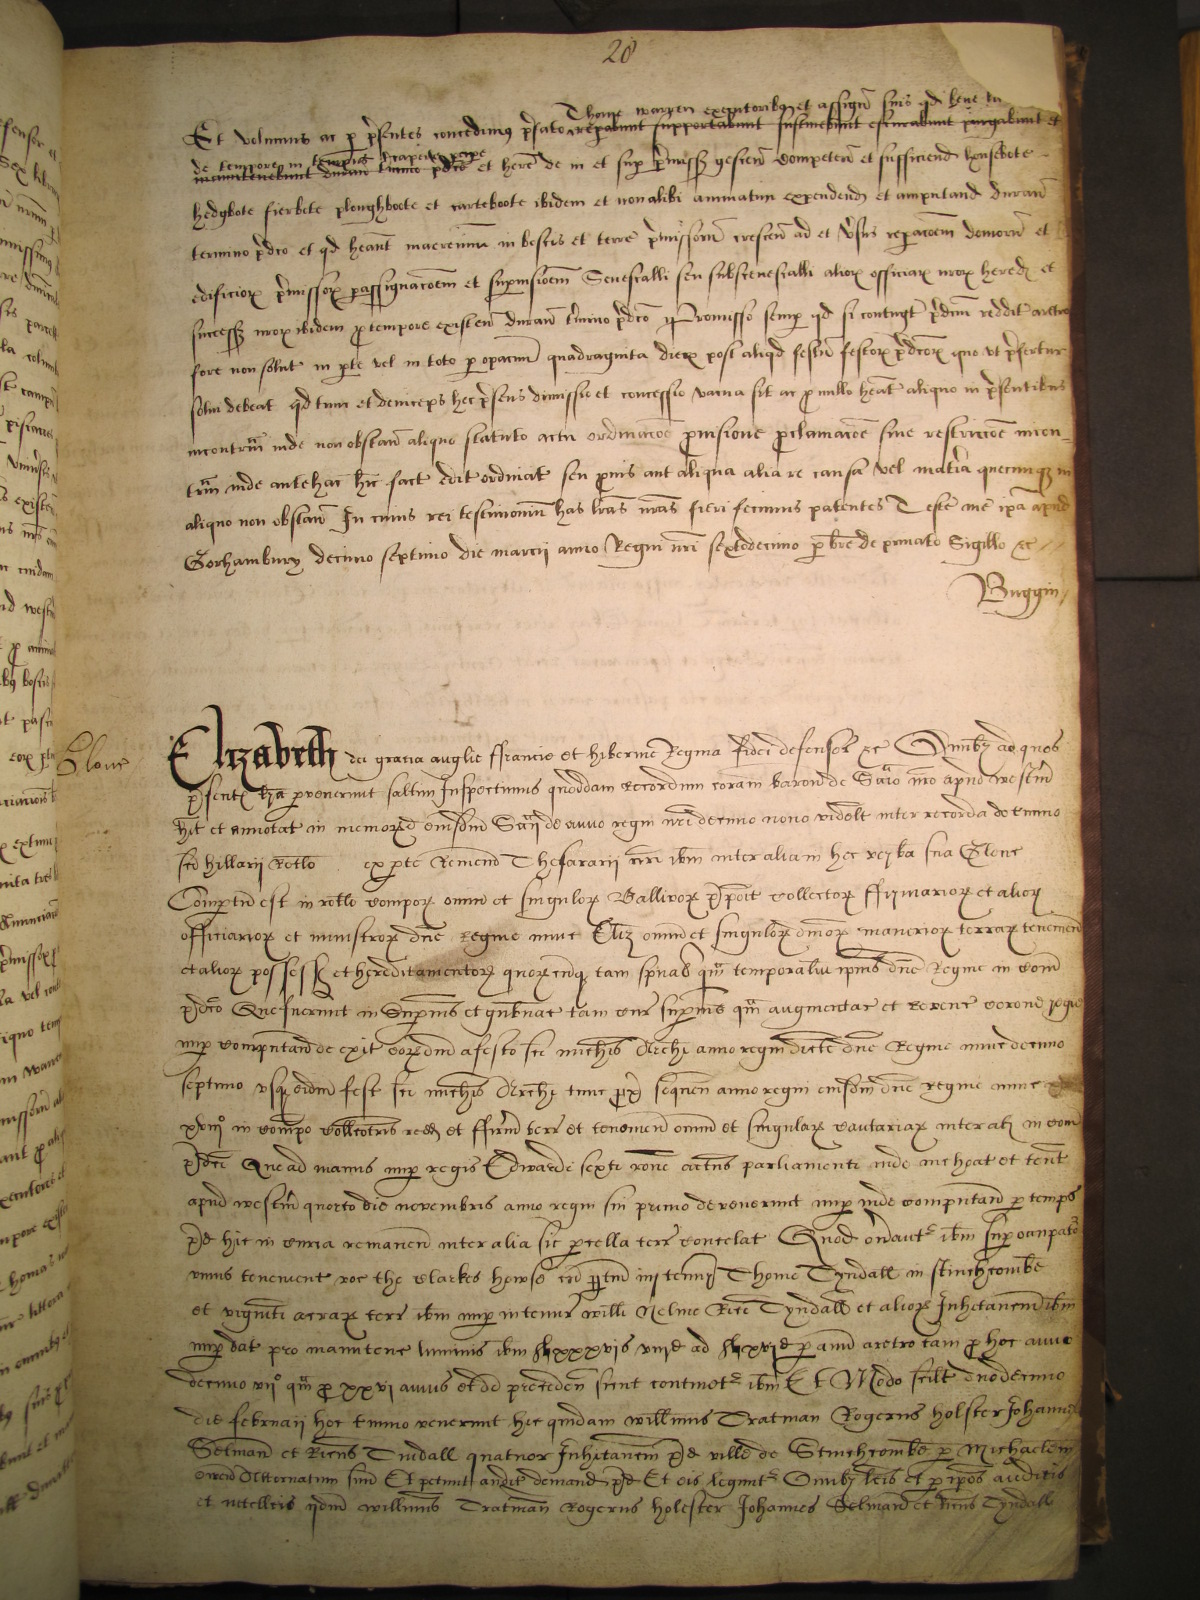 28
Thome warren executoribus et assign suis qd bene
Et volumus ac p presentes concedimus prefato reparabunt supportabunt sustinebunt escurabunt purgabunt et
de tempore in tempus et herede de in et sup premiss crescen competen et sufficiend housebote
hedgbote fierbote ploughboote et carteboote ibidem et non alibi annuatim expendend et amputand duran
termino pdco et qd heant maeremium in boscis et terre premissorum crescen ad et versus reparacoem domorum et
edificiorum premissorum p assignacoem et supvisioem Senescalli seu subsenescalli alior officiar nror hered et
successor nror ibidem p tempore existen duran termino pdco Promisso semp qd si contingt predcm reddit aretro
fore non solut in pte vel in toto p spacium quadraginta dierum post aliqd festum festor pdcor quo ut prefertur
solui debeat qd tunc et deinceps hec presens dimissio et concessio vacua sit ac p nullo heat aliquo in presentibus
incontrm inde non obstan aliquo statuto actu ordinacoe provisione proclamacoe sive restriccoe incon-
trm inde antehac hit fact edit ordinat seu provis aut aliqua alia re causa vel materia quecumque in
aliquo non obstan In cuius rei testimonium has lras nras fieri fecimus patentes Teste me ipa apud
Gorhambury decimo septimo die marcii anno Regni nri sextodecimo p bre de privato Sigillo &c
Buggin
Glouc
Elizabeth dei gratia anglie ffrancie et hibernie Regina fidei defensor &c Omnibz ad quos
psentes lre pervenerint saltm Inspeximus quoddam recordum coram baron de Sccio nro apud westm
hit et annotat in memorand eiusdm Sccii de anno regni nri decimo nono videlt inter recorda de termino
sci hillarii Rotlo ex pte Remem Thesaurarii nri ibm inter alia in hec verba sua Glouc
Compertu est in rotlo compor omniu et singulor Ballivor pposit collector ffirmarior et alior
officiarior et ministror dne Regine nunc Eliz omniu et singulor dnior manerior terrar tenement
et alior possess et hereditamentor quorcunq tam spualiu qm temporaliu ipius dne Regine in com
pdco Que fuerunt in Supvis et gubnac tam cur supvis qm augmentac et revenc corone regie
nup computand de exit eordm a festo sci michis Archi anno regni dicte dne Regine nunc decimo
septimo usq eidm fest sci michis Archi tunc prox sequen anno regni eiusdm dne regine nunc
xviij° in compo collectoris redd et ffirm terr et tenemen omniu et singular cantariar inter al in com
pdci Que ad manus nup regis Edwardi sexti rone actus parliamenti inde inchoat et tent
apud westm quarto die novembris anno regni sui primo devenerunt nup inde computand p temps
pd hic in curia remanen inter alia sic parcella terr concelat Quod onerantr ibm sup occupator
unius tenement voc the Clarkes howse cu ptin in tenur Thome Tyndall in Stinchcombe
et viginti acrar terr ibm nup in tenur willi Nelme Rici Tyndall et alior Inhitanciu ibm
nup dat pro manutenc luminis ibm ad p annu aretro tam p hoc anno
decimo viij° qm p xxvi annis et dd preceden sicut continetr ibm Et Modo scilt duodecimo
die februarii hoc termino venerunt hic quidam willmus Tratman Rogerus holster Johannes
Selman et Ricus Tindall quatuor Inhitancm pd ville de Stinchcombe p Michaelem
attornatum suu Et petunt audit demand pd Et eis legitr Quibz lectis et p ipos auditis
et intellectis ijdm willmus Tratman Rogerus holester Johannes Selman et Ricus Tyndall